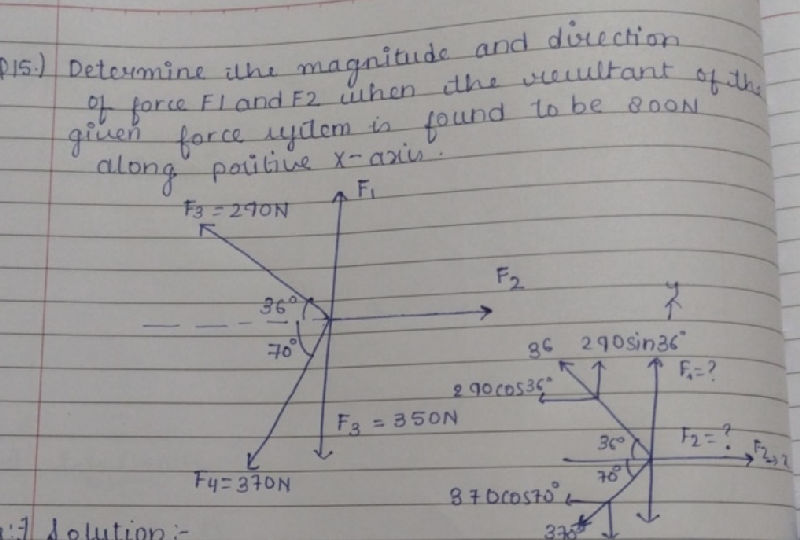 Q15.) Determine the magnitude and direction
of force F1 and F2 when the resultant of the
given force system is found to be 800N
along positive x-axis.
F1
F3 = 290N
F2
36°
70°
F3 = 350N
F4 = 370N
y
36
290sin36°
F1 = ?
290cos36°
36°
F2 = ?
70°
370cos70°
370
Solution :-